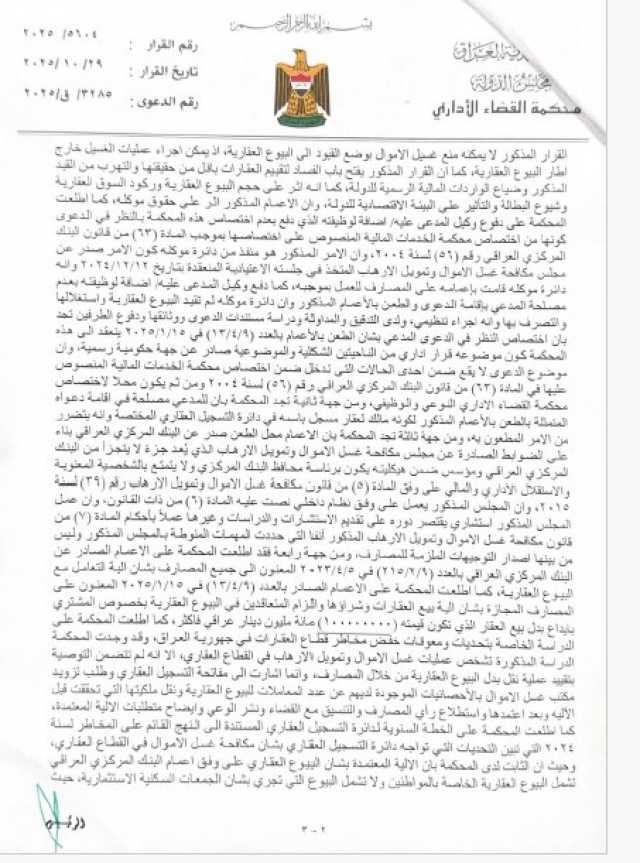 بسم الله الرحمن الرحيم
رقم القرار : ٥٦٠٤/ ٢٠٢٥
تاريخ القرار : ٢٩/ ١٠/ ٢٠٢٥
رقم الدعوى : ٣٢٨٥/ق/٢٠٢٥
مجلس الدولة
محكمة القضاء الأداري
القرار المذكور لا يمكنه منع غسيل الاموال بوضع القيود الى البيوع العقارية، اذ يمكن اجراء عمليات الغسيل خارج
اطار البيوع العقارية، كما ان القرار المذكور يفتح باب الفساد لتقييم العقارات باقل من حقيقتها والتهرب من القيد
المذكور وضياع الواردات المالية الرسمية للدولة، كما انه اثر على حجم البيوع العقارية وركود السوق العقارية
وشيوع البطالة والتأثير على البيئة الاقتصادية للدولة، وان الاعمام المذكور اثر على حقوق موكله، كما اطلعت
المحكمة على دفوع وكيل المدعى عليه/ اضافة لوظيفته الذي دفع بعدم اختصاص هذه المحكمة بالنظر في الدعوى
كونها من اختصاص محكمة الخدمات المالية المنصوص على اختصاصها بموجب المادة (٦٣) من قانون البنك
المركزي العراقي رقم (٥٦) لسنة ٢٠٠٤، وان الامر المذكور هو منفذ من دائرة موكله كون الامر صدر عن
مجلس مكافحة غسل الاموال وتمويل الارهاب المتخذ في جلسته الاعتيادية المنعقدة بتاريخ ٢٠٢٤/١٢/١٢ وانه
دائرة موكله قامت بإعمامه على المصارف للعمل بموجبه، كما دفع وكيل المدعى عليه/ اضافة لوظيفته بعدم
مصلحة المدعي بإقامة الدعوى والطعن بالأعمام المذكور وان دائرة موكله لم تقيد البيوع العقارية واستغلالها
والتصرف بها وانه اجراء تنظيمي، ولدى التدقيق والمداولة ودراسة مستندات الدعوى ووثائقها ودفوع الطرفين تجد
بان اختصاص النظر في الدعوى المدعي بشان الطعن بالأعمام بالعدد (١٣/٤/٩) في ٢٠٢٥/١/١٥ ينعقد الى هذه
المحكمة كون موضوعه قرار اداري من الناحيتين الشكلية والموضوعية صادر عن جهة حكومية رسمية، وان
موضوع الدعوى لا يقع ضمن احدى الحالات التي تدخل ضمن اختصاص محكمة الخدمات المالية المنصوص
عليها في المادة (٦٣) من قانون البنك المركزي العراقي رقم (٥٦) لسنة ٢٠٠٤ ومن ثم يكون محلا لاختصاص
محكمة القضاء الاداري النوعي والوظيفي، ومن جهة ثانية تجد المحكمة بان للمدعي مصلحة في اقامة دعواه
المتمثلة بالطعن بالأعمام المذكور لكونه مالك لعقار مسجل باسمه في دائرة التسجيل العقاري المختصة وانه يتضرر
من الامر المطعون به، ومن جهة ثالثة تجد المحكمة بان الاعمام محل الطعن صدر عن البنك المركزي العراقي بناء
على الضوابط الصادرة عن مجلس مكافحة غسل الاموال وتمويل الارهاب الذي يُعد جزء لا يتجزأ من البنك
المركزي العراقي ومؤسس ضمن هيكليته يكون برئاسة محافظ البنك المركزي ولا يتمتع بالشخصية المعنوية
والاستقلال الأداري والمالي على وفق المادة (٥) من قانون مكافحة غسل الاموال وتمويل الارهاب رقم (٣٩) لسنة
٢٠١٥، وان المجلس المذكور يعمل على وفق نظام داخلي نصت عليه المادة (٦) من ذات القانون، وان عمل
المجلس المذكور استشاري يقتصر دوره على تقديم الاستشارات والدراسات وغيرها عملاً بأحكام المادة (٧) من
قانون مكافحة غسل الاموال وتمويل الارهاب المذكور أنفا التي حددت المهمات المنوطة بالمجلس المذكور وليس
من بينها اصدار التوجيهات الملزمة للمصارف، ومن جهة رابعة فقد اطلعت المحكمة على الاعمام الصادر عن
البنك المركزي العراقي بالعدد (٢١٥/٢/٩) في ٢٠٢٣/٤/٥ المعنون الى جميع المصارف بشان الية التعامل مع
البيوع العقارية، كما اطلعت المحكمة على الاعمام الصادر بالعدد (١٣/٤/٩) في ٢٠٢٥/١/١٥ المعنون على
المصارف المجازة بشان الية بيع العقارات وشراؤها والزام المتعاقدين في البيوع العقارية بخصوص المشتري
بايداع بدل بيع العقار الذي تكون قيمته (١٠٠٠٠٠٠٠٠) مائة مليون دينار عراقي فأكثر، كما اطلعت المحكمة على
الدراسة الخاصة بتحديات ومعوقات خفض مخاطر قطاع العقارات في جمهورية العراق، وقد وجدت المحكمة
الدراسة المذكورة تشخص عمليات غسل الاموال وتمويل الارهاب في القطاع العقاري، الا انه لم تتضمن التوصية
بتقييد عملية نقل بدل البيوع العقارية من خلال المصارف، وانما اشارت الى مفاتحة التسجيل العقاري وطلب تزويد
مكتب غسل الاموال بالأحصائيات الموجودة لديهم عن عدد المعاملات للبيوع العقارية ونقل ملكيتها التي تحققت قبل
الآليه وبعد اعتمدها واستطلاع راي المصارف والتنسيق مع القضاء ونشر الوعي وايضاح متطلبات الالية المعتمدة،
كما اطلعت المحكمة على الخطة السنوية لدائرة التسجيل العقاري المستندة الى النهج القائم على المخاطر لسنة
٢٠٢٤ التي تبين التحديات التي تواجه دائرة التسجيل العقاري بشان مكافحة غسل الاموال في القطاع العقاري،
وحيث ان الثابت لدى المحكمة بان الالية المعتمدة بشان البيوع العقاري على وفق اعمام البنك المركزي العراقي
تشمل البيوع العقارية الخاصة بالمواطنين ولا تشمل البيوع التي تجري بشان الجمعات السكنية الاستثمارية، حيث
الرئيس
٢ - ٣